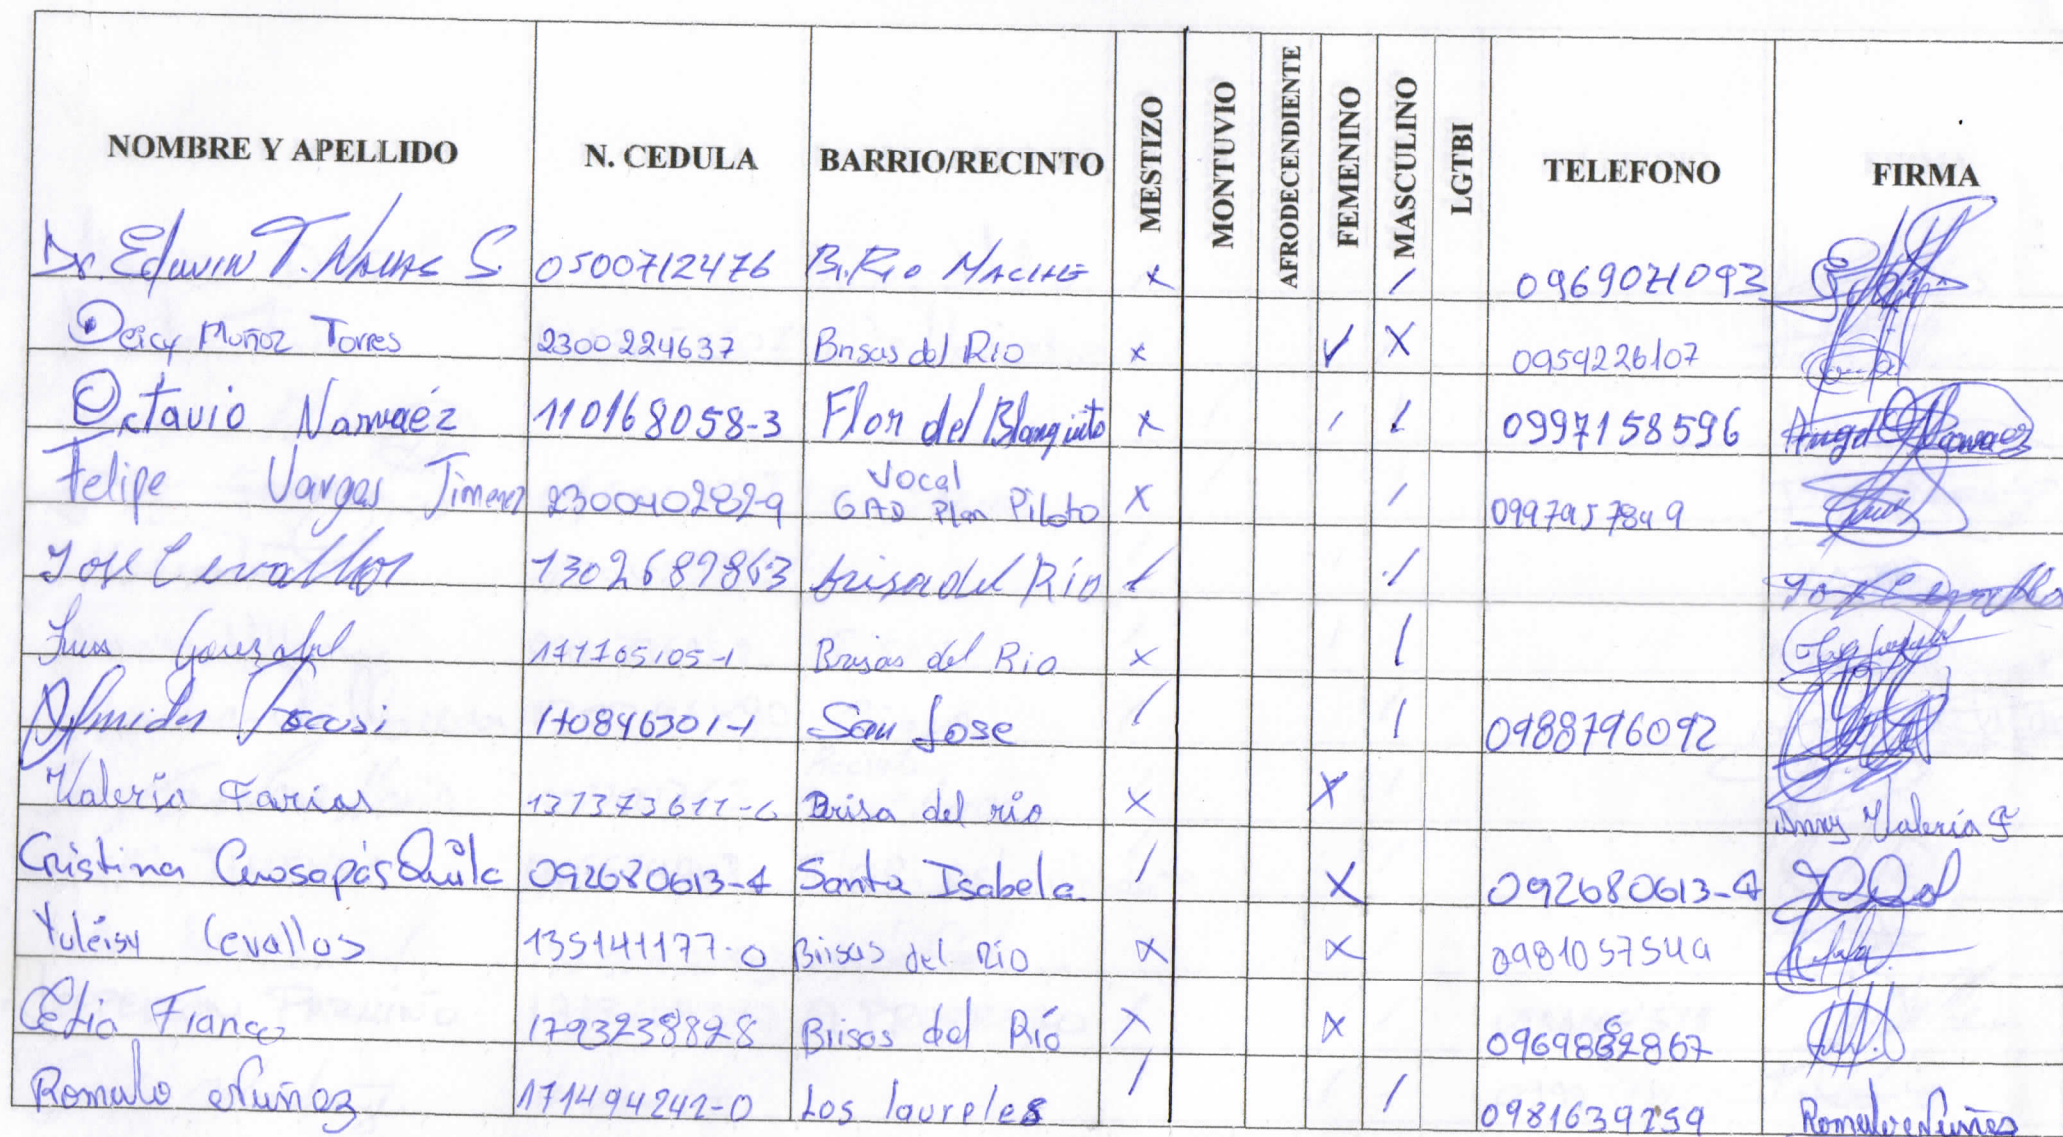 NOMBRE Y APELLIDO N. CEDULA BARRIO/RECINTO MESTIZO MONTUVIO AFRODECENDIENTE FEMENINO MASCULINO LGTBI TELEFONO FIRMA
Dr. Edwin T. Navas S. 0500712476 B. Rio Mache x / 0969071093
Deicy Muñoz Torres 2300224637 Brisas del Rio x ✓ X 0959226107
Octavio Narvaéz 110168058-3 Flor del Blanquito x / / 0997158596 Angel Narvaez
Felipe Vargas Jimenez 230040282-9 Vocal GAD Plan Piloto X / 0997957849
Jose Cevallos 1302689863 brisa del Río / / Jose Cevallos
171165105-1 Brisas del Rio x /
170846301-1 San Jose / / 0988796092
Valeria Farias 131373611-6 Brisa del río X X Anny Valeria F
Cristina 092680613-4 Santa Isabela / X 092680613-4
Yuleisy Cevallos 135141177-0 Brisas del Rio x x 0981057544
Franco 1793238828 Brisas del Río X X
Romulo Nuñez 171494242-0 Los laureles / / 0981639259 Romulo Nuñez